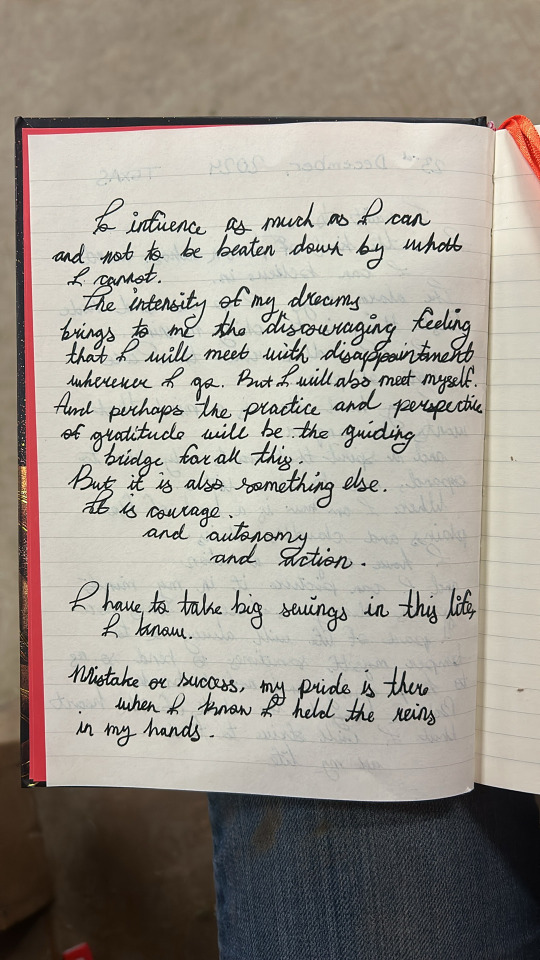 To influence as much as I can
and not to be beaten down by what
I cannot.
The intensity of my dreams
brings to me the discouraging feeling
that I will meet with disappointment
wherever I go. But I will also meet myself.
And perhaps the practice and perspective
of gratitude will be the guiding
bridge for all this.
But it is also something else.
It is courage.
and autonomy
and action.
I have to take big swings in this life,
I know.
Mistake or success, my pride is there
when I know I held the reins
in my hands.